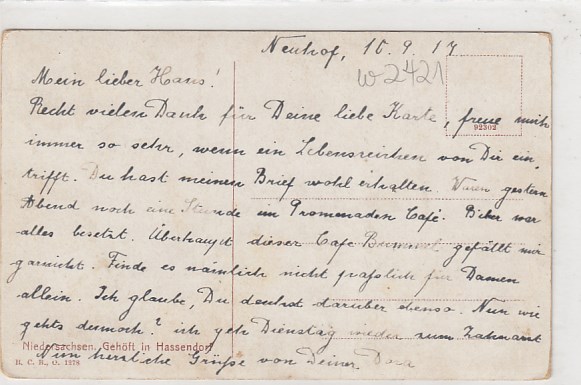 Neuhof, 10.9.17
W2421
Mein lieber Hans!
Recht vielen Dank für Deine liebe Karte, freue mich
92302
immer so sehr, wenn ein Lebenszeichen von Dir ein,
trifft. Du hast meinen Brief wohl erhalten. Waren gestern
Abend noch eine Stunde im Promenaden Café. Bker war
alles besetzt. Überhaupt dieser Cafe Bummel gefällt mir
garnicht. Finde es nämlich nicht für Damen
allein. Ich glaube, Du denkst darüber ebenso. Nun wie
gehts dennoch? ich geh Dienstag wieder zum Zahnarzt
Niedersachsen. Gehöft in Hassendorf
Nun herzliche Grüße von Deiner Dora
R. C. B., O. 1278